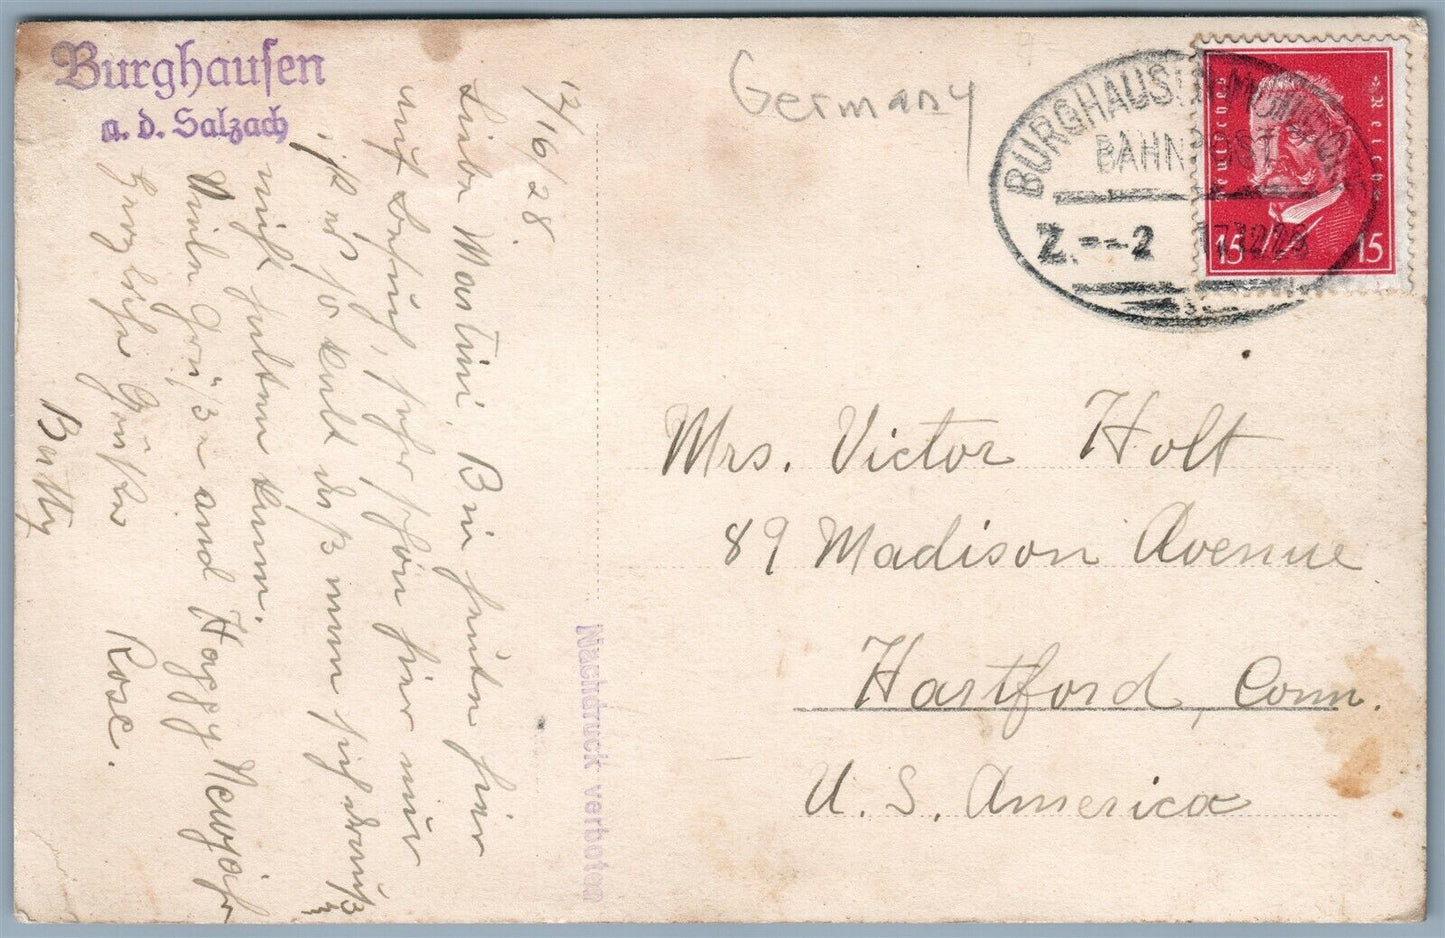 Burghausen
a. d. Salzach
12/16/28.
Liebe Martini. Bin heute hier
auf Besuch, sehr schön hier nur
ist es so kalt daß man sich draußen
nicht halten kann.
Viele Grüße and Happy Newjahr
Herzliche Grüße Rose.
Betty
Nachdruck verboten
Germany
BURGHAUSEN-MÜHLDORF
BAHNPOST
Z.---2
171228
Deutsches Reich
15 15
Mrs. Victor Holt
89 Madison Avenue
Hartford, Conn.
U. S. America